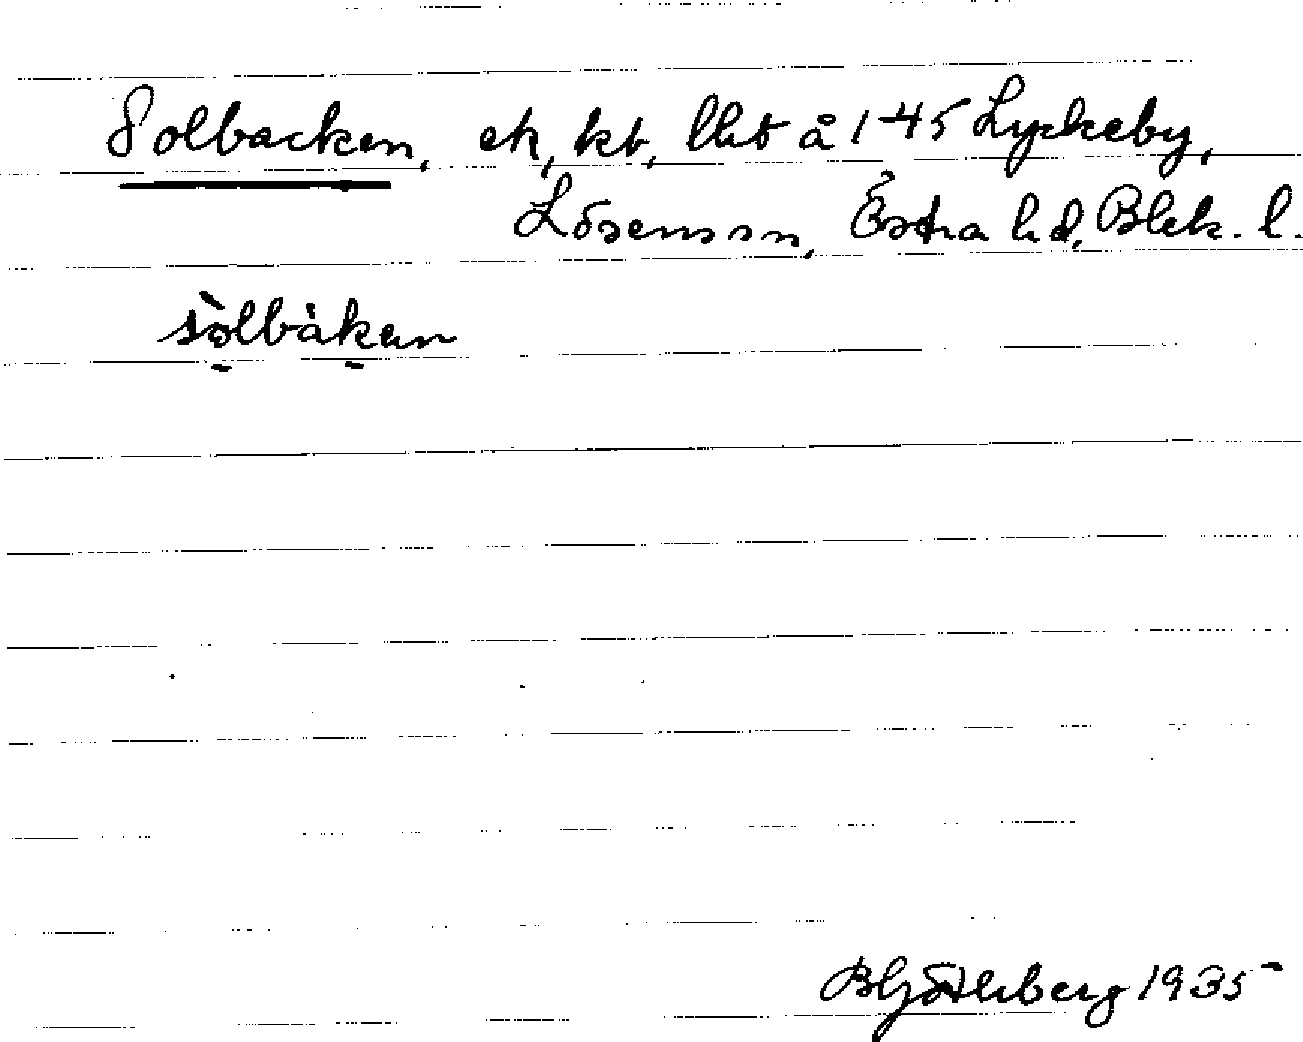 Solbacken, ek, kb, lht å 1-45 Lyckeby,
Lösens sn, Östra hd, Blek. l.
sòlbàken
1935